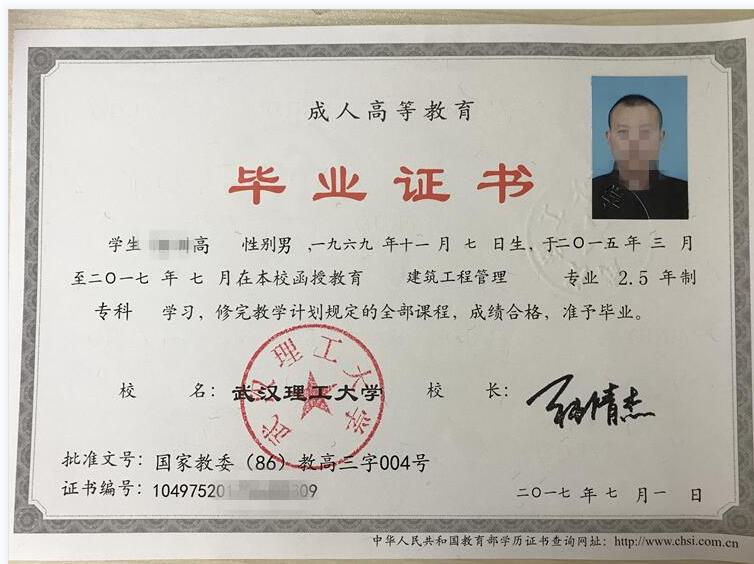 成人高等教育
毕业证书
学生 高 性别男,一九六九年十一月七日生,于二〇一五年三月
至二〇一七年七月在本校函授教育 建筑工程管理 专业 2.5 年制
专科 学习,修完教学计划规定的全部课程,成绩合格,准予毕业。
校 名:武汉理工大学 校 长:
武汉理工大学
批准文号:国家教委(86)教高三字004号
证书编号:10497520 809
二〇一七年七月一日
中华人民共和国教育部学历证书查询网址:http://www.chsi.com.cn